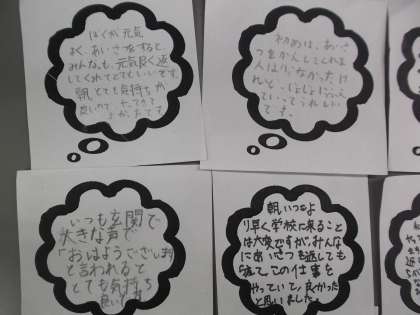 ぼくが元気
よくあいさつをすると
みんなも、元気良く返
してくれてとてもいいです。
朝とても気持ちが
良いので、やってきて
よかったです
初めは、あいさ
つをかえしてくれる
人は少なかったけ
れど、
ていってうれしい
です。
いつも玄関で
大きな声で
「おはようございます」
と言われると
とても気持ち
良いです
朝いつもよ
り早く学校に来ること
は大変ですが、みんな
にあいさつを返しても
らって、この仕事を
やっていて、良かった
と思いました。